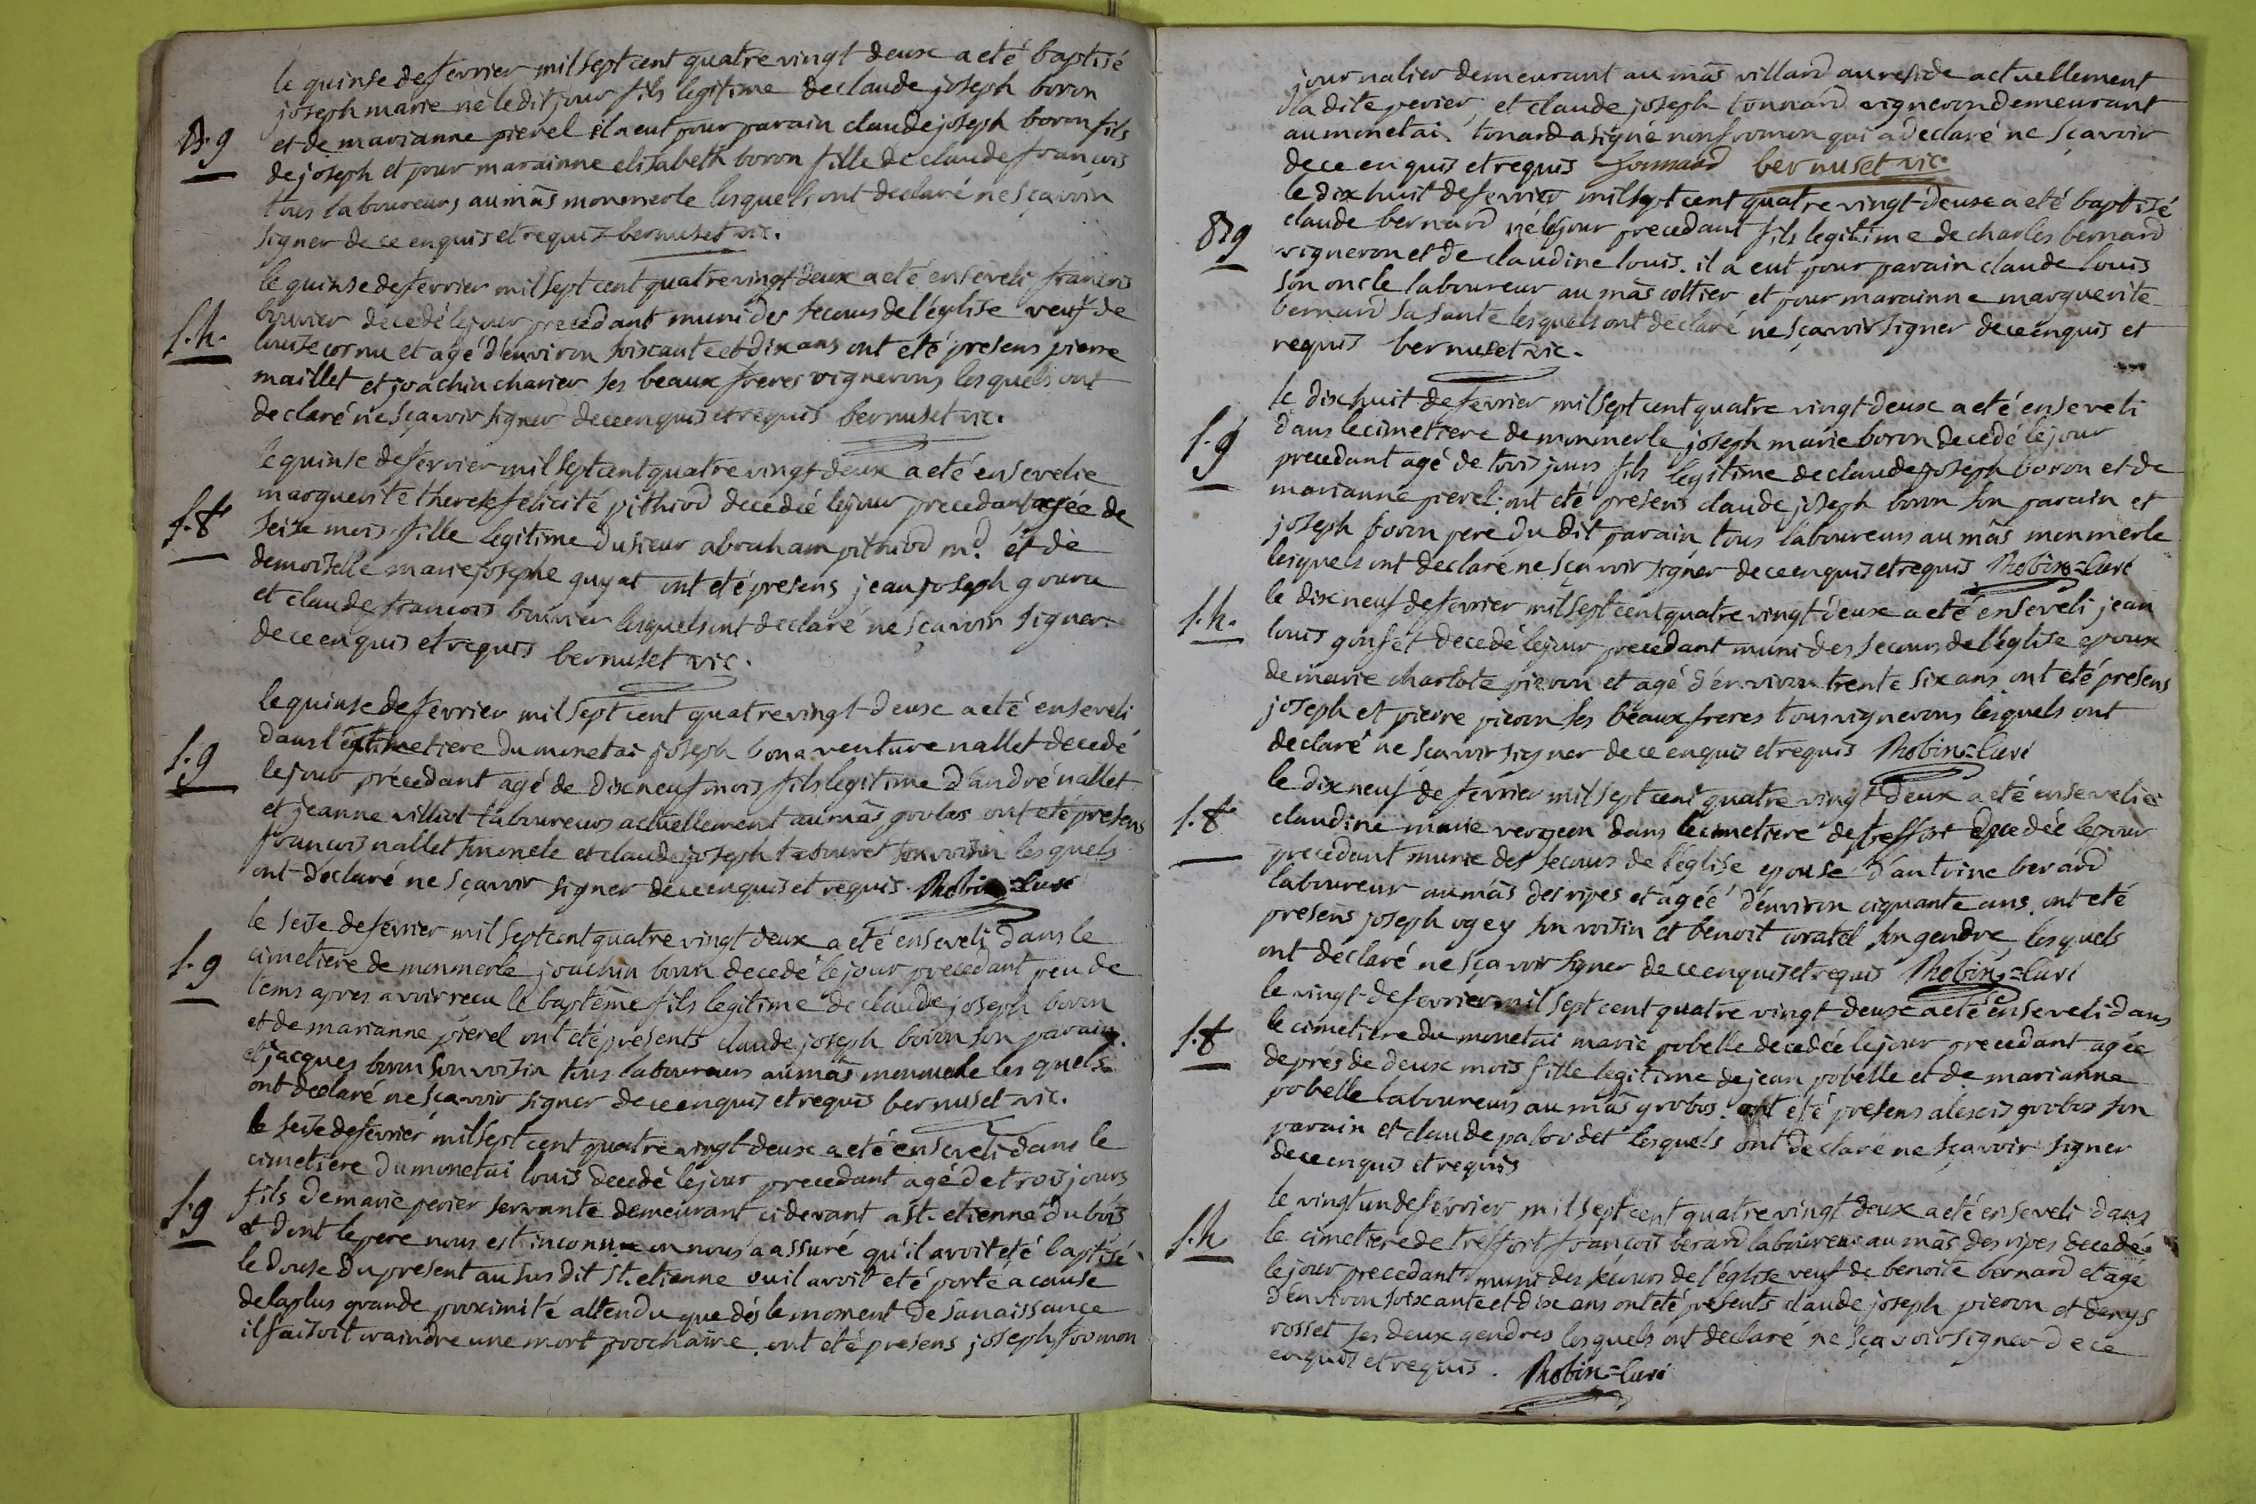 le quinse de fevrier mil sept cent quatre vingt deux a eté baptisé
joseph marie né le dit jour fils legitime de claude joseph boron
B. g
et de marianne pierel il a eut pour parain claude joseph boron fils
de joseph et pour marainne elisabeth boron fille de claude francois
tous laboureurs au mâs monmerle lesquels ont declaré ne sçavoir
signer de ce enquis et requis bernuset vic.
le quinse de fevrier mil sept cent quatre vingt deux a eté enseveli francois
bouvier decedé le jour precedant muni des secours de l'église veuf de
s. h.
louise cornu et agé d'environ soiscante et dix ans ont eté presens pierre
maillet et joachin charier ses beaux freres vignerons lesquels ont
declaré ne sçavoir signer de ce enquis et requis bernuset vic.
le quinse de fevrier mil sept cent quatre vingt deux a eté ensevelie
marguerite therese felicité pithiod decedée le jour precedant agée de
s. f
seise mois fille legitime du sieur abraham pithiod md. et de
demoiselle marie josephe guyat ont eté presens jean joseph gouru
et claude francois bouvier lesquels ont declaré ne sçavoir signer
de ce enquis et requis bernuset vic.
le quinse de fevrier mil sept cent quatre vingt deux a eté enseveli
dans le cimetiere du monetai joseph bonaventure nallet decedé
s. g
le jour précedant agé de dix neuf mois fils legitime d'andré nallet
et jeanne villiot laboureurs actuellement au mâs grobas ont eté presens
francois nallet son oncle et claude joseph tabouret son voisin lesquels
ont declaré ne sçavoir signer de ce enquis et requis Robin=Curé
le seise de fevrier mil sept cent quatre vingt deux a eté enseveli dans le
s. g
cimetiere de monmerle joachin boron decedé le jour precedant peu de
tems apres avoir recu le baptême fils legitime de claude joseph boron
et de marianne pierel ont eté présents claude joseph boron son parain
et jacques boron son voisin tous laboureurs au mâs monmerle les quels
ont declaré ne sçavoir signer de ce enquis et requis bernuset vic.
le seise de février mil sept cent quatre vingt deux a eté enseveli dans le
cimetiere du monetai louis decedé le jour precedant agé de trois jours
s. g
fils de marie perier servante demeurant ci devant a st. etienne du bois
et dont le pere nous est inconnu on nous a assuré qu'il avoit eté baptisé
le douse du present au sus dit st. etienne ou il avoit eté porté a cause
de la plus grande proximité attendu que dès le moment de sa naissance
il faisoit craindre une mort prochaine. ont eté presens joseph fromon
journalier demeurant au mâs villard ou reside actuellement
la dite perier, et claude joseph tonnard vigneron demeurant
au monetai. tonard a signé non fromon qui a declaré ne sçavoir
de ce enquis et requis tonnard bernuset vic.
le dix huit de fevrier mil sept cent quatre vingt deux a eté baptisé
B. g
claude bernard né le jour precedant fils legitime de charles bernard
vigneron et de claudine louis. il a eut pour parain claude louis
son oncle laboureur au mâs cottier et pour marainne marguerite
bernard sa tante lesquels ont declaré ne sçavoir signer de ce enquis et
requis bernuset vic.
le dix huit de fevrier mil sept cent quatre vingt deux a eté enseveli
s. g
dans le cimetiere de monmerle joseph marie boron decedé le jour
precedant agé de trois jours fils legitime de claude joseph boron et de
marianne pierel. ont eté presens claude joseph boron son parain et
joseph boron pere du dit parain tous laboureurs au mâs monmerle
lesquels ont declaré ne sçavoir signer de ce enquis et requis Robin=Curé
le dix neuf de fevrier mil sept cent quatre vingt deux a eté enseveli jean
s. h.
louis gonset decedé le jour precedant muni des secours de l'église epoux
de marie charlote pieron et agé d'environ trente six ans ont eté presens
joseph et pierre pieron ses beaux freres tous vignerons lesquels ont
declaré ne sçavoir signer de ce enquis et requis Robin=Curé
le dix neuf de fevrier mil sept cent quatre vingt deux a eté ensevelie
s. f
claudine marie vergeon dans le cimetiere de treffort decedée le jour
precedant munie des secours de l'église epouse d'antoine berard
laboureur au mâs des ripes et agéé d'environ ciquante ans. ont eté
presens joseph ogey son voisin et benoit coratel son gendre lesquels
ont declaré ne sçavoir signer de ce enquis et requis Robin=Curé
le vingt de fevrier mil sept cent quatre vingt deux a eté enseveli dans
s. f
le cimetiere du monetai marie pobelle decedée le jour precedant agée
de prés de deux mois fille legitime de jean pobelle et de marianne
pobelle laboureurs au mâs grobos. ont eté presens alexis grobos son
parain et claude palordet lesquels ont declaré ne sçavoir signer
de ce enquis et requis
le vingt un de février mil sept cent quatre vingt deux a eté enseveli dans
s. h
le cimetiere de treffort francois berard laboureur au mâs des ripes decedé
le jour precedant muni des secours de l'église veuf de benoite bernard et agé
d'environ soixante et dix ans ont eté présents claude joseph pieron et denys
rosset ses deux gendres lesquels ont declaré ne sçavoir signer de ce
enquis et requis. Robin=Curé